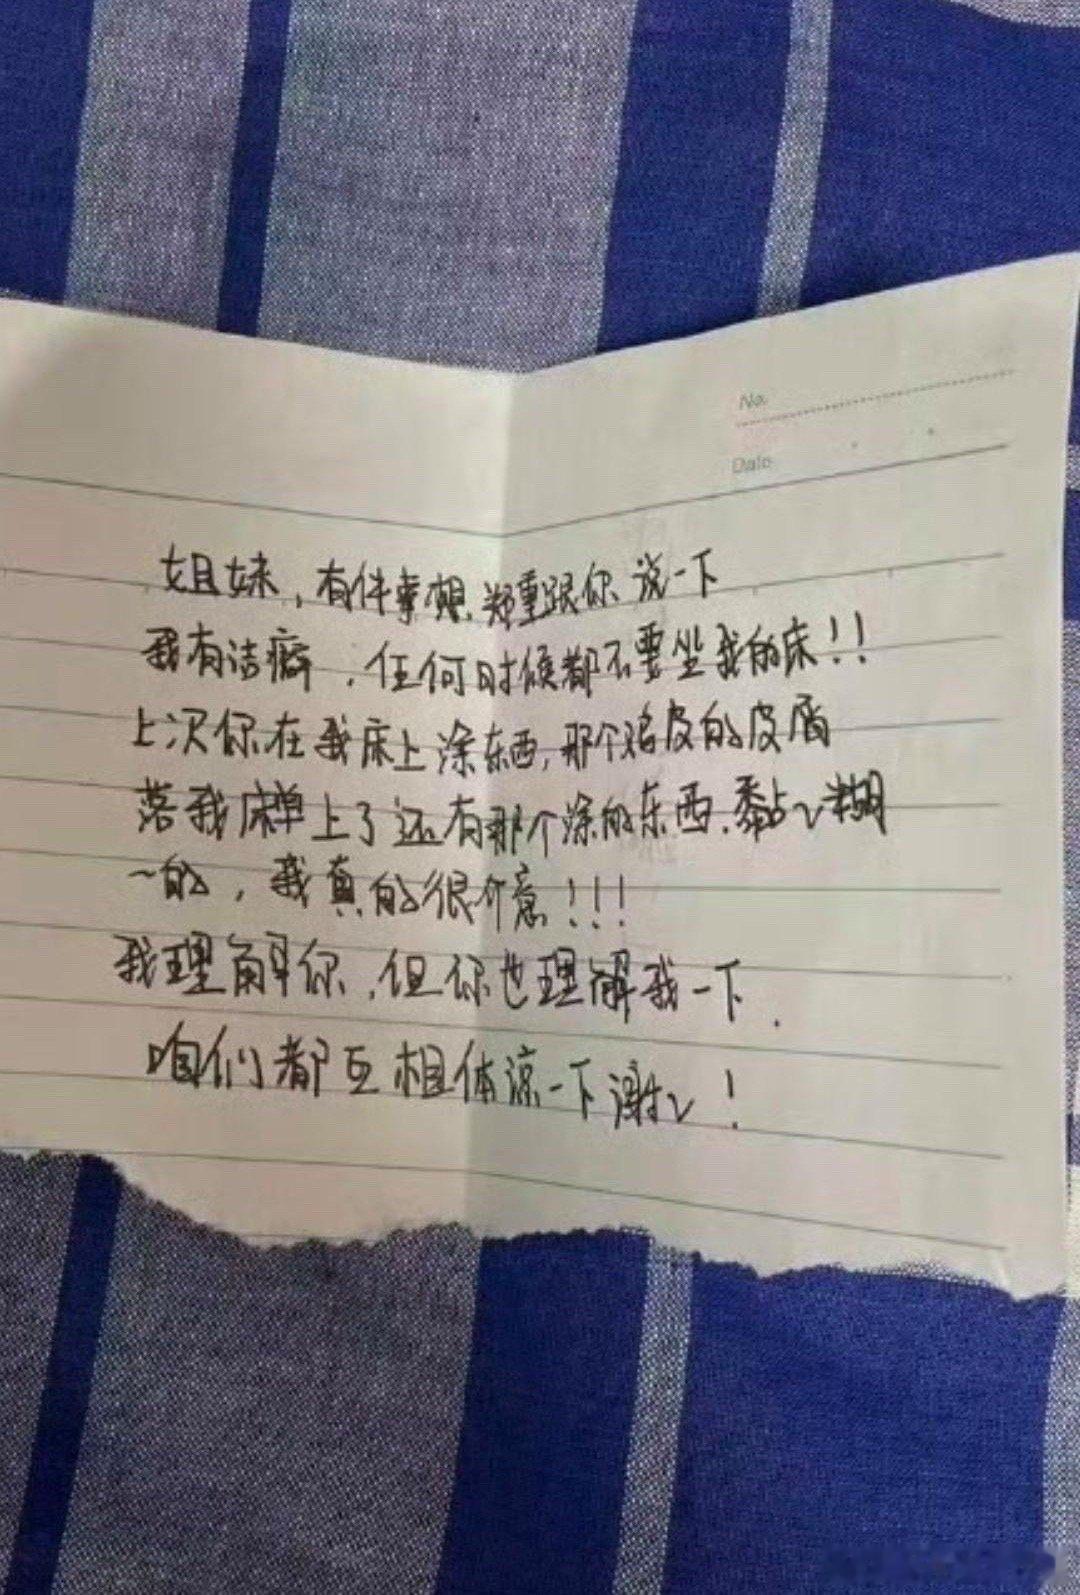 No.
Date
姐妹，有件事想郑重跟你说一下
我有洁癖，任何时候都不要坐我的床！！
上次你在我床上涂东西，那个鸡皮的皮屑
落我床单上了还有那个涂的东西，黏黏糊
~的，我真的很介意！！！
我理解你，但你也理解我一下．
咱们都互相体谅一下谢谢！